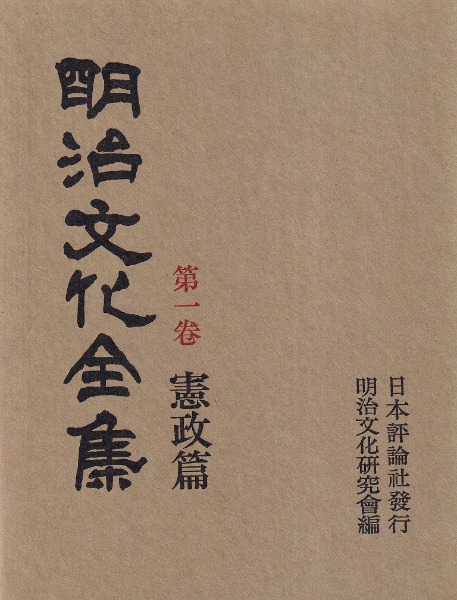 明治文化全集
第一卷
憲政篇
日本評論社發行
明治文化研究會編